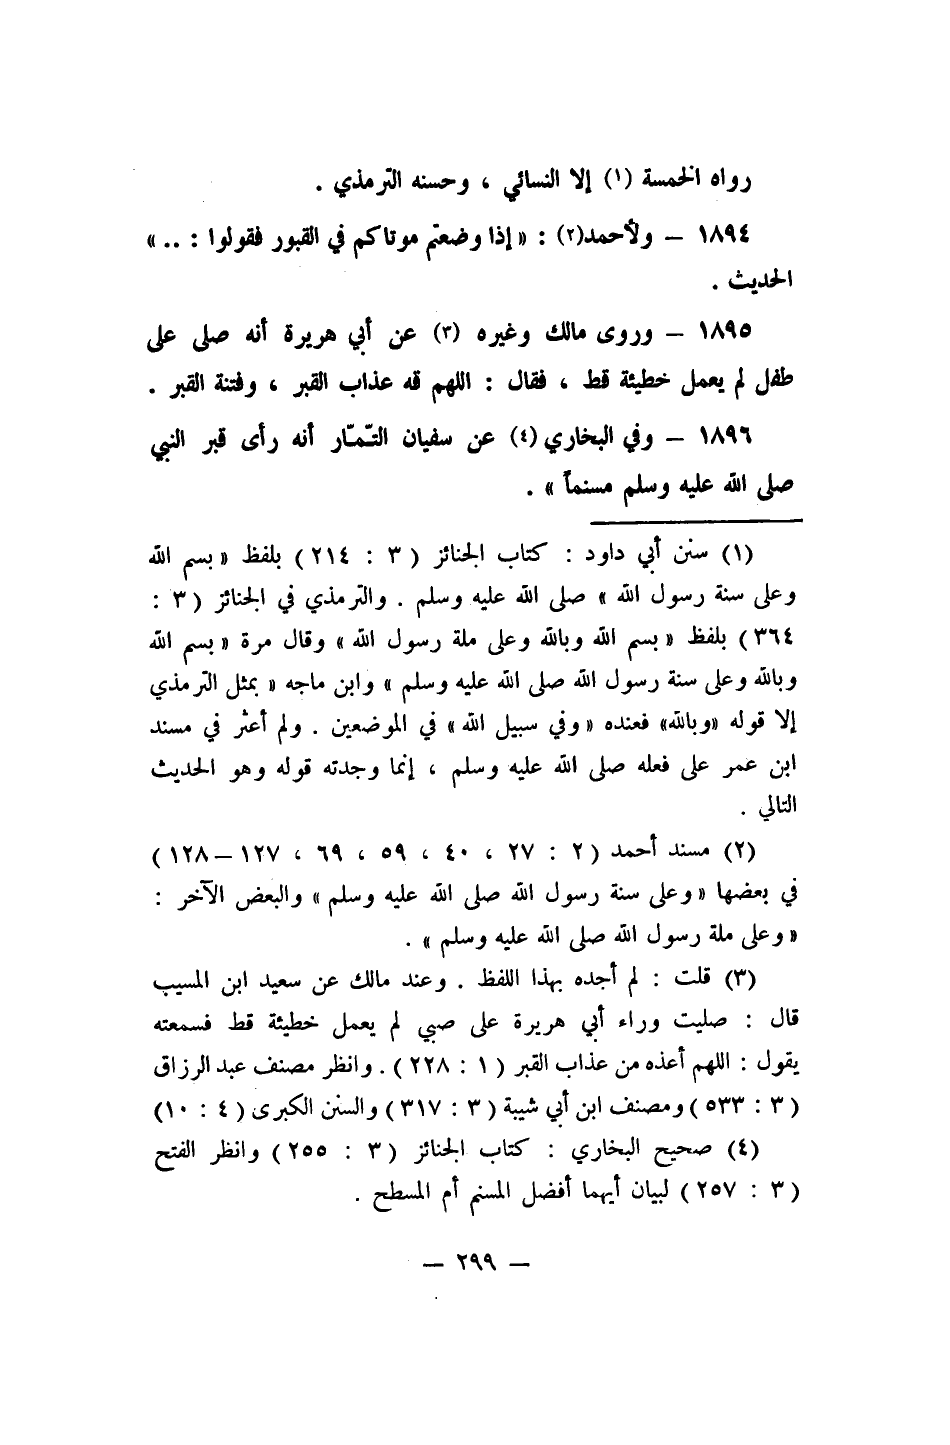 رواه الخمسة (١) إلا النسائي ، وحسنه الترمذي .
١٨٩٤ – ولأحمد(٢) : « إذا وضعتم موتاكم في القبور فقولوا : .. »
الحديث .
١٨٩٥ – وروى مالك وغيره (٣) عن أبي هريرة أنه صلى على
طفل لم يعمل خطيئة قط ، فقال : اللهم قه عذاب القبر ، وفتنة القبر .
١٨٩٦ – وفي البخاري (٤) عن سفيان التمّار أنه رأى قبر النبي
صلى الله عليه وسلم مسنماً » .
(١) سنن أبي داود : كتاب الجنائز ( ٣ : ٢١٤ ) بلفظ « بسم الله
وعلى سنة رسول الله » صلى الله عليه وسلم . والترمذي في الجنائز ( ٣ :
٣٦٤ ) بلفظ « بسم الله وبالله وعلى ملة رسول الله » وقال مرة « بسم الله
وبالله وعلى سنة رسول الله صلى الله عليه وسلم » وابن ماجه « بمثل الترمذي
إلا قوله «وبالله» فعنده « وفي سبيل الله » في الموضعين . ولم أعثر في مسند
ابن عمر على فعله صلى الله عليه وسلم ، إنما وجدته قوله وهو الحديث
التالي .
(٢) مسند أحمد ( ٢ : ٢٧ ، ٤٠ ، ٥٩ ، ٦٩ ، ١٢٧ – ١٢٨ )
في بعضها « وعلى سنة رسول الله صلى الله عليه وسلم » والبعض الآخر :
« وعلى ملة رسول الله صلى الله عليه وسلم » .
(٣) قلت : لم أجده بهذا اللفظ . وعند مالك عن سعيد ابن المسيب
قال : صليت وراء أبي هريرة على صبي لم يعمل خطيئة قط فسمعته
يقول : اللهم أعذه من عذاب القبر ( ١ : ٢٢٨ ) . وانظر مصنف عبد الرزاق
( ٣ : ٥٣٣ ) ومصنف ابن أبي شيبة ( ٣ : ٣١٧ ) والسنن الكبرى ( ٤ : ١٠ )
(٤) صحيح البخاري : كتاب الجنائز ( ٣ : ٢٥٥ ) وانظر الفتح
( ٣ : ٢٥٧ ) لبيان أيهما أفضل المسنم أم المسطح .
– ٢٩٩ –